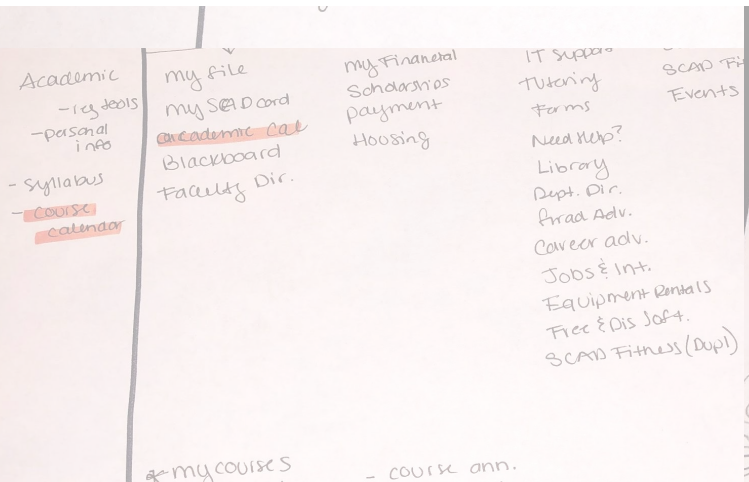 Academic
- reg tools
- personal
info
- Syllabus
- course
calendar
my file
my SCAD card
academic cal
Blackboard
Faculty Dir.
my Financial
Scholarships
payment
Hoosing
IT Support
Tutering
Forms
Need Help?
Library
Dept. Dir.
Grad Adv.
Career adv.
Jobs & Int.
Equipment Rentals
Free & Dis Soft.
SCAD Fitness (Dupl)
SCAD Fit
Events
* my courses
- course ann.